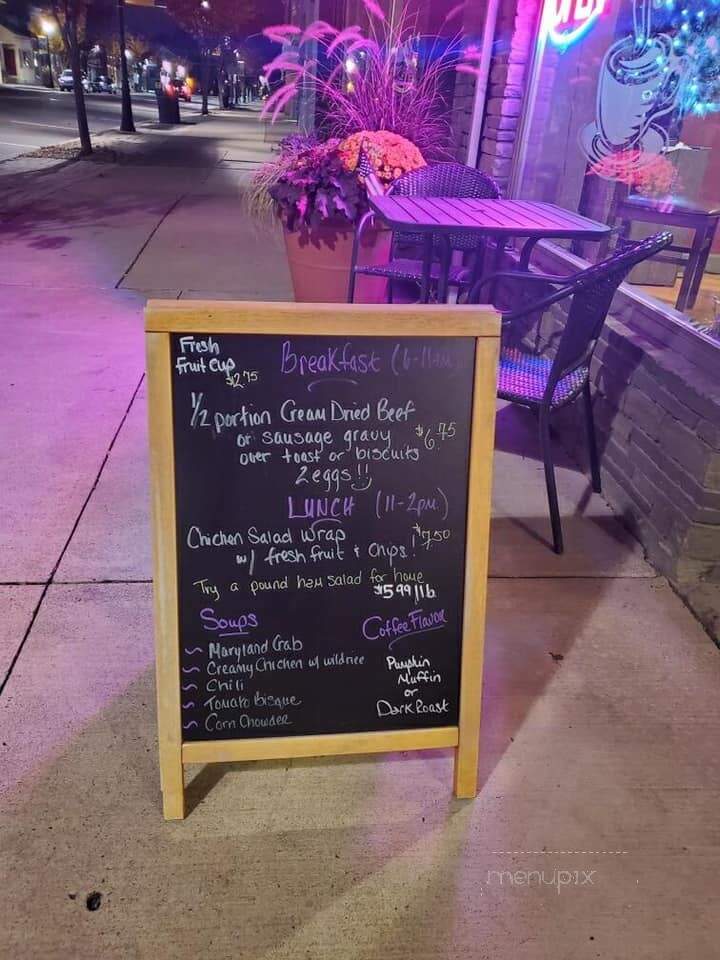 Fresh
Fruit Cup
$2.75
Breakfast (6-11AM
1/2 portion Cream Dried Beef
or sausage gravy
over toast or biscuits
2 eggs!!
$6.75
LUNCH (11-2pm)
Chicken Salad Wrap
w/ fresh fruit & Chips!
$7.50
Try a pound ham salad for home
$5.99/lb
Soups
~ Maryland Crab
~ Creamy Chicken w/ wild rice
~ Chili
~ Tomato Bisque
~ Corn Chowder
Coffee Flavor
Pumpkin
Muffin
or
Dark Roast
menupix